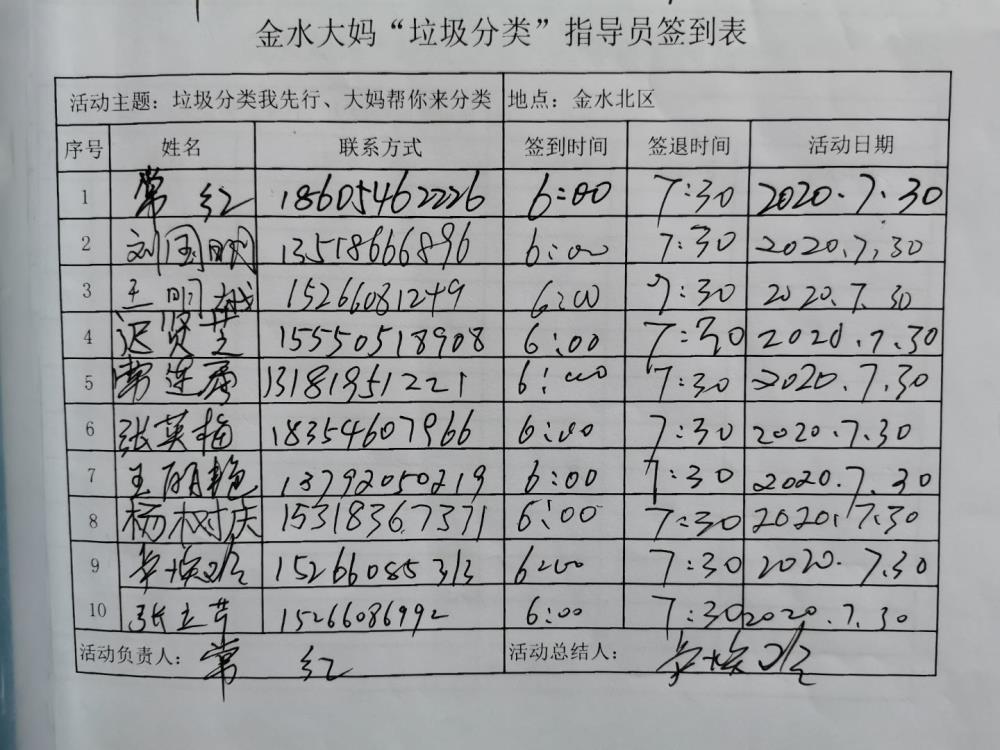 金水大妈“垃圾分类”指导员签到表
活动主题：垃圾分类我先行、大妈帮你来分类 地点：金水北区
序号 姓名 联系方式 签到时间 签退时间 活动日期
1 常红 18605462226 6:00 7:30 2020.7.30
2 刘国明 13518666896 6:00 7:30 2020.7.30
3 王明越 15266081249 6:00 7:30 2020.7.30
4 迟贤芝 15550518908 6:00 7:30 2020.7.30
5 常连 13181951221 6:00 7:30 2020.7.30
6 张英梅 18354607966 6:00 7:30 2020.7.30
7 王明艳 13792050219 6:00 7:30 2020.7.30
8 杨树庆 15318367371 6:00 7:30 2020.7.30
9 15266085313 6:00 7:30 2020.7.30
10 张立芹 15266086992 6:00 7:30 2020.7.30
活动负责人：常红 活动总结人：